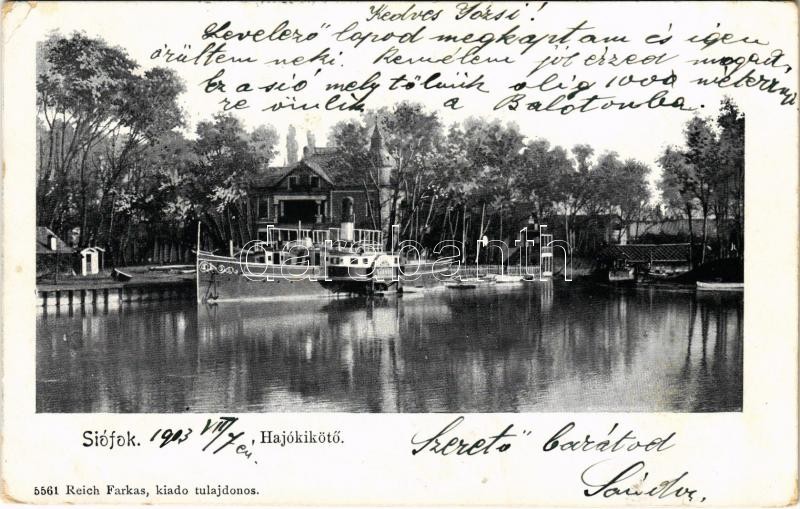 Kedves Józsi!
Levelező lapod megkaptam és igen
örültem neki. Remélem jól érzed magad,
Ez a sió mely tőlünk alig 1000 méternyi
re ömlik a Balatonba.
darabanth
Siófok. 1903 VIII/7én. Hajókikötő.
Szerető barátod
Sándor.
5561 Reich Farkas, kiado tulajdonos.